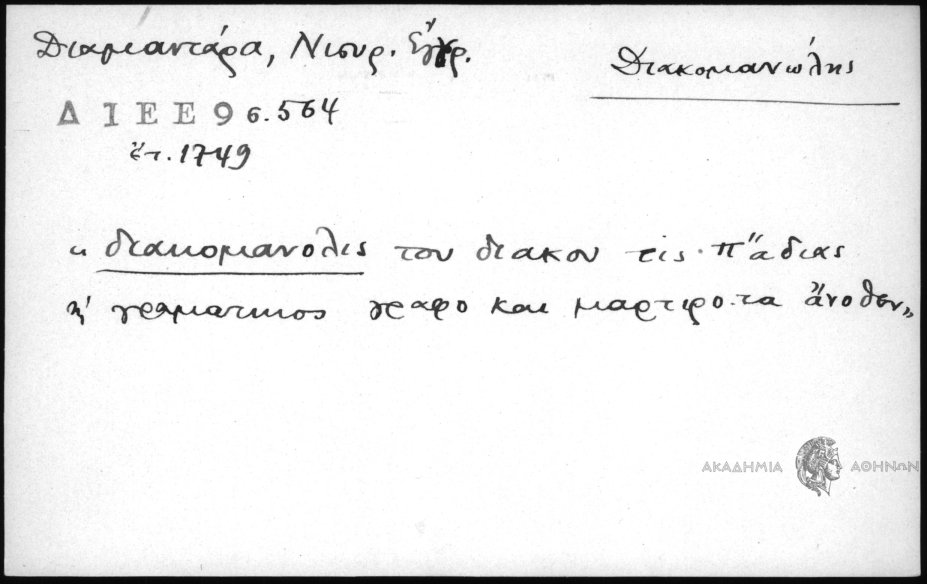 Διαμαντάρα, Νισυρ. Ἔγγρ.
Διακομανώλης
ΔΙΕΕ 9 σ. 564
ἔτ. 1749
« διακομανολις του διακου τις πάδιας
κ' γραματικος γραφο και μαρτιρο τα ἄνοθεν»
ΑΚΑΔΗΜΙΑ ΑΘΗΝΩΝ